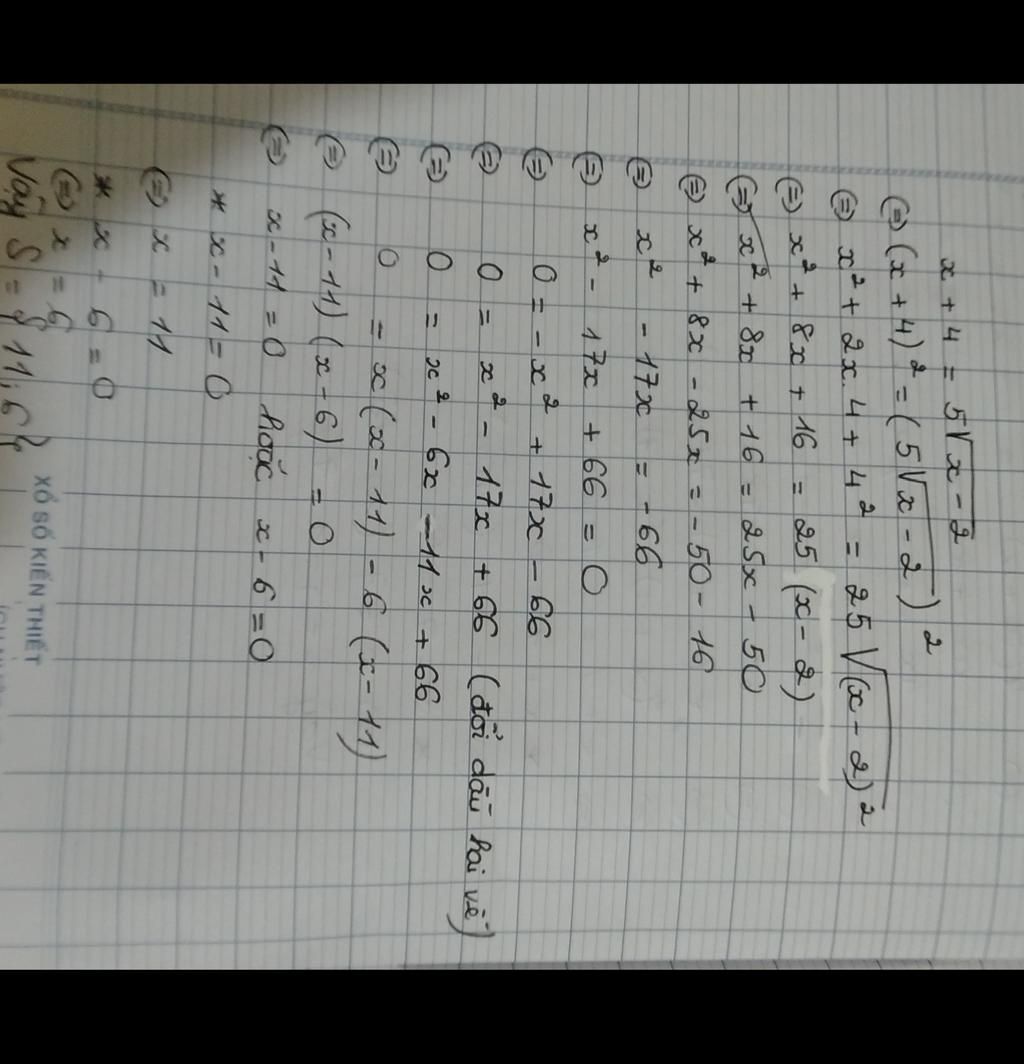 x + 4 = 5√x - 2
(=) (x + 4)² = (5√x - 2)²
(=) x² + 2x.4 + 4² = 25√(x - 2)²
(=) x² + 8x + 16 = 25 (x - 2)
(=) x² + 8x + 16 = 25x - 50
(=) x² + 8x - 25x = - 50 - 16
(=) x² - 17x = - 66
(=) x² - 17x + 66 = 0
(=) 0 = - x² + 17x - 66
(=) 0 = x² - 17x + 66 (đổi dấu hai vế)
(=) 0 = x² - 6x - 11x + 66
(=) 0 = x (x - 11) - 6 (x - 11)
(=) (x - 11) (x - 6) = 0
(=) x - 11 = 0 hoặc x - 6 = 0
* x - 11 = 0
(=) x = 11
* x - 6 = 0
(=) x = 6
Vậy S = {11; 6}
XỔ SỐ KIẾN THIẾT